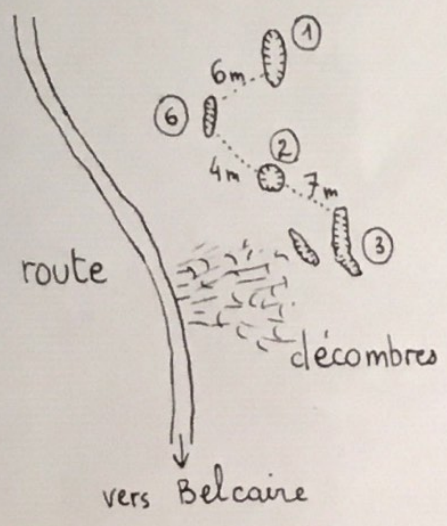 ①
6m
⑥
②
4m
7m
③
route
décombres
vers Belcaire